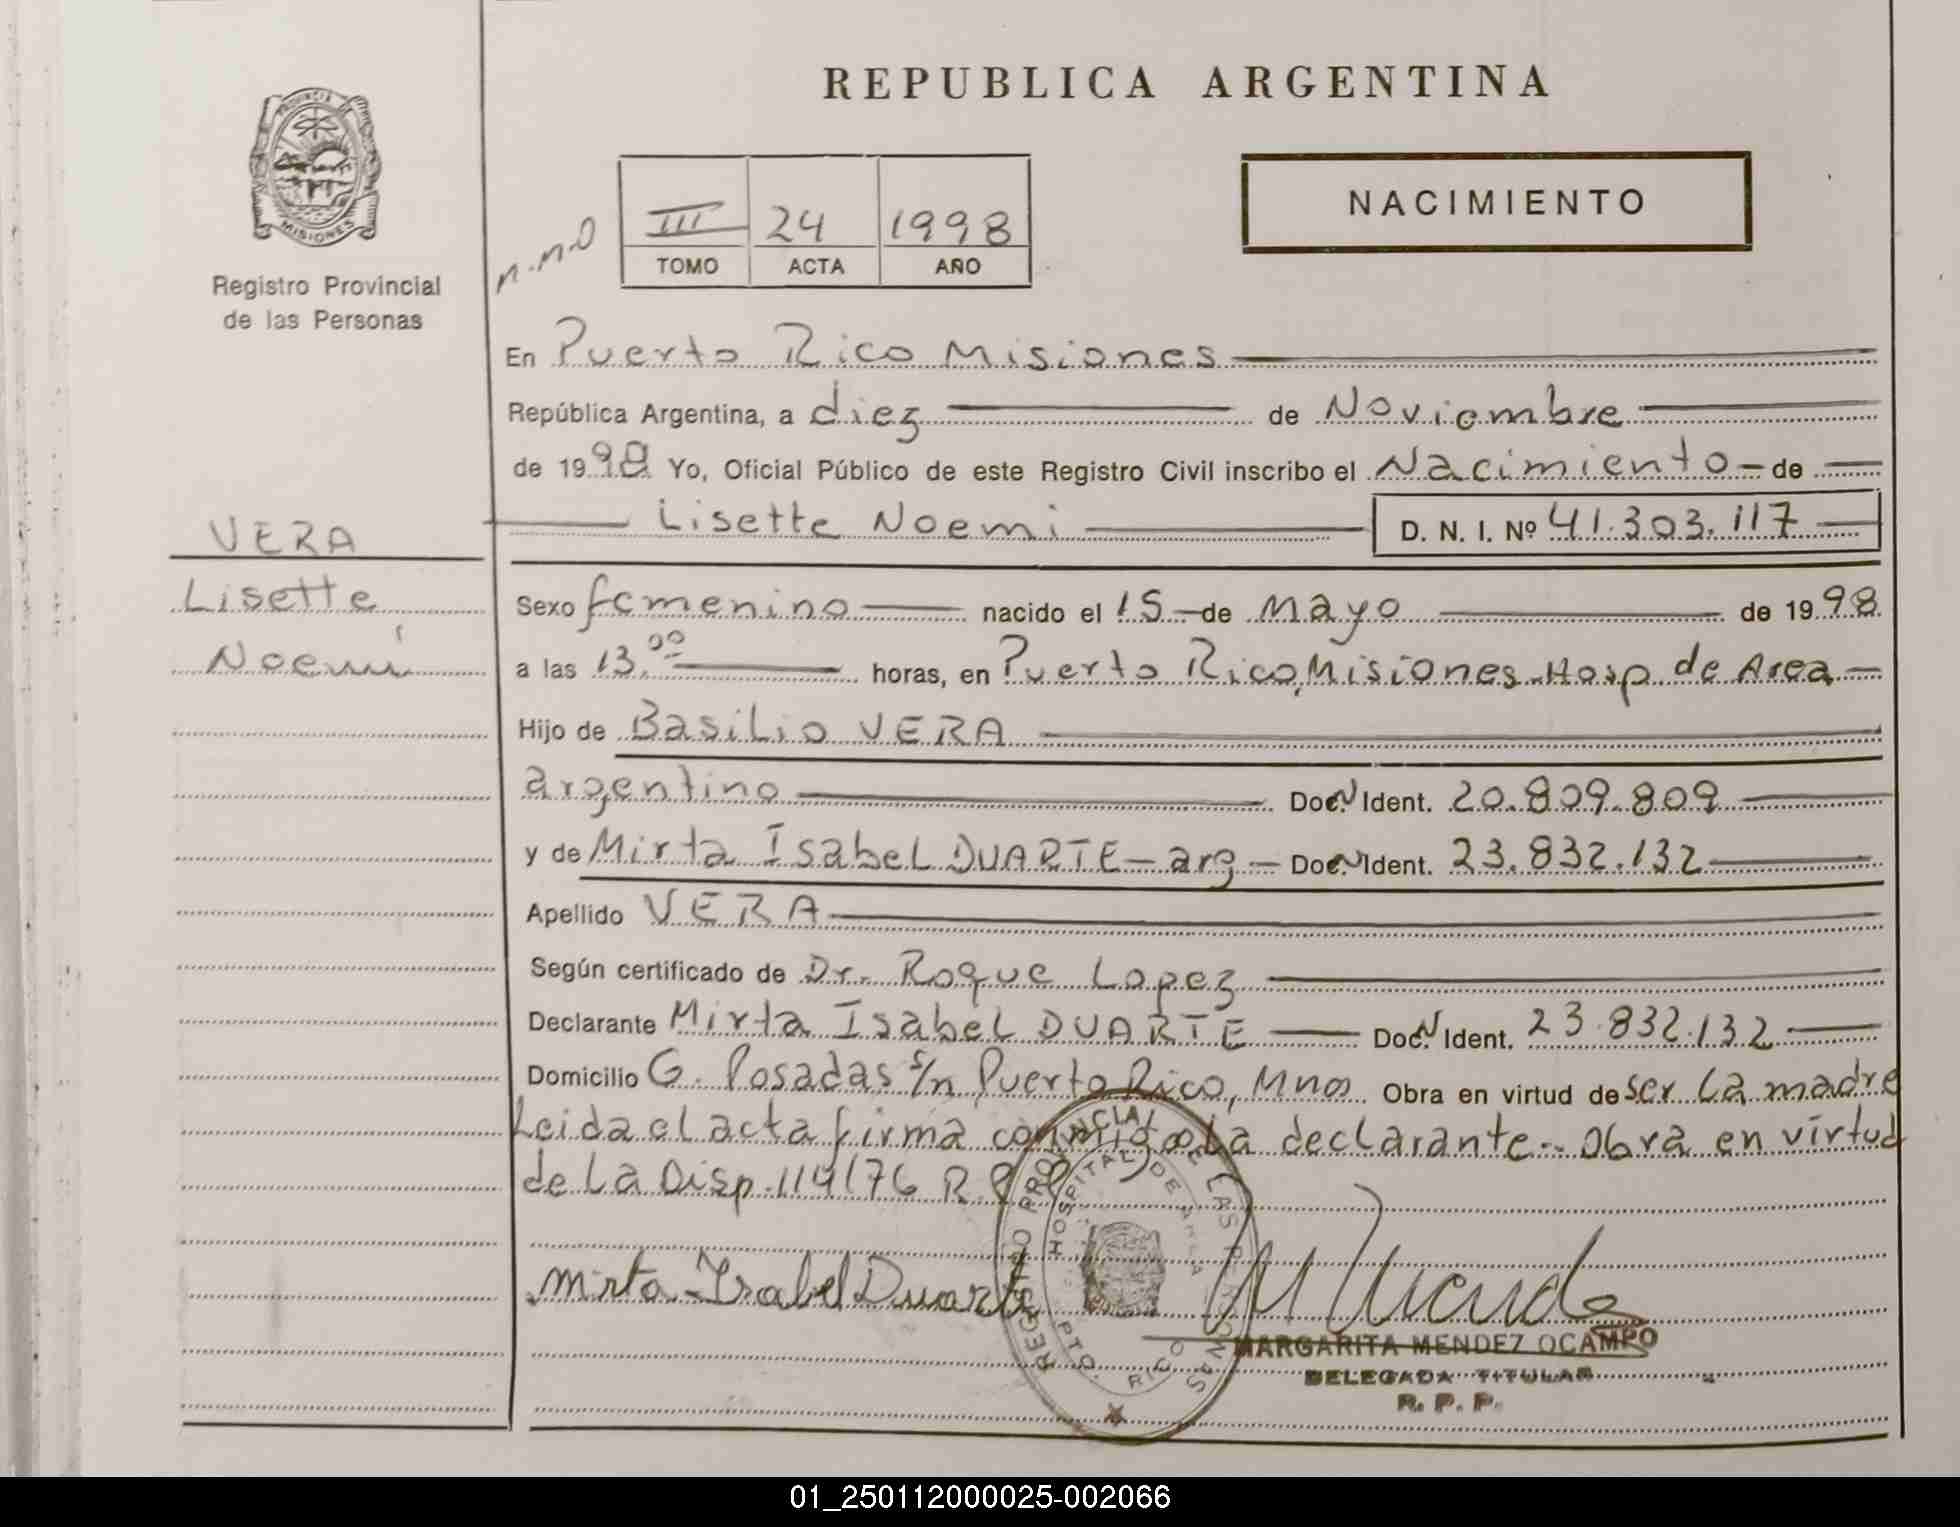 REPUBLICA ARGENTINA
PROVINCIA
MISIONES
Registro Provincial
de las Personas
n.n.o
III 24 1998
TOMO ACTA AÑO
NACIMIENTO
En Puerto Rico Misiones
República Argentina, a diez de Noviembre
de 1998 Yo, Oficial Público de este Registro Civil inscribo el Nacimiento de
Lisette Noemi D. N. I. Nº 41.303.117
VERA
Lisette
Noemí
Sexo femenino nacido el 15 de Mayo de 1998
a las 13,00 horas, en Puerto Rico, Misiones-Hosp de Area
Hijo de Basilio VERA
argentino Doc. N Ident. 20.809.809
y de Mirta Isabel DUARTE-arg- Doc. N Ident. 23.832.132
Apellido VERA
Según certificado de Dr. Roque Lopez
Declarante Mirta Isabel DUARTE Doc. N Ident. 23.832.132
Domicilio G. Posadas s/n Puerto Rico, Mnes Obra en virtud de ser la madre
Leida el acta firma conmigo la declarante-. Obra en virtud
de la Disp. 114/76 R.P.P
REGISTRO PROVINCIAL DE LAS PERSONAS
HOSPITAL DE AREA
PTO. RICO
Mirta Isabel Duarte
MARGARITA MENDEZ OCAMPO
DELEGADA TITULAR
R. P. P.
01_250112000025-002066